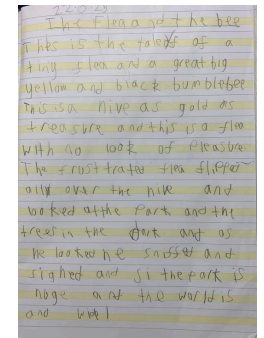 The Flea and the bee
This is the tale of a
tiny flea and a great big
yellow and black bumblebee
This is a hive as gold as
treasure and this is a flea
with no look of pleasure
The frustrated flea
all over the hive and
looked at the Park and the
trees in the Park and as
he looked he sniffed and
sighed and the park is
huge and the world is
and